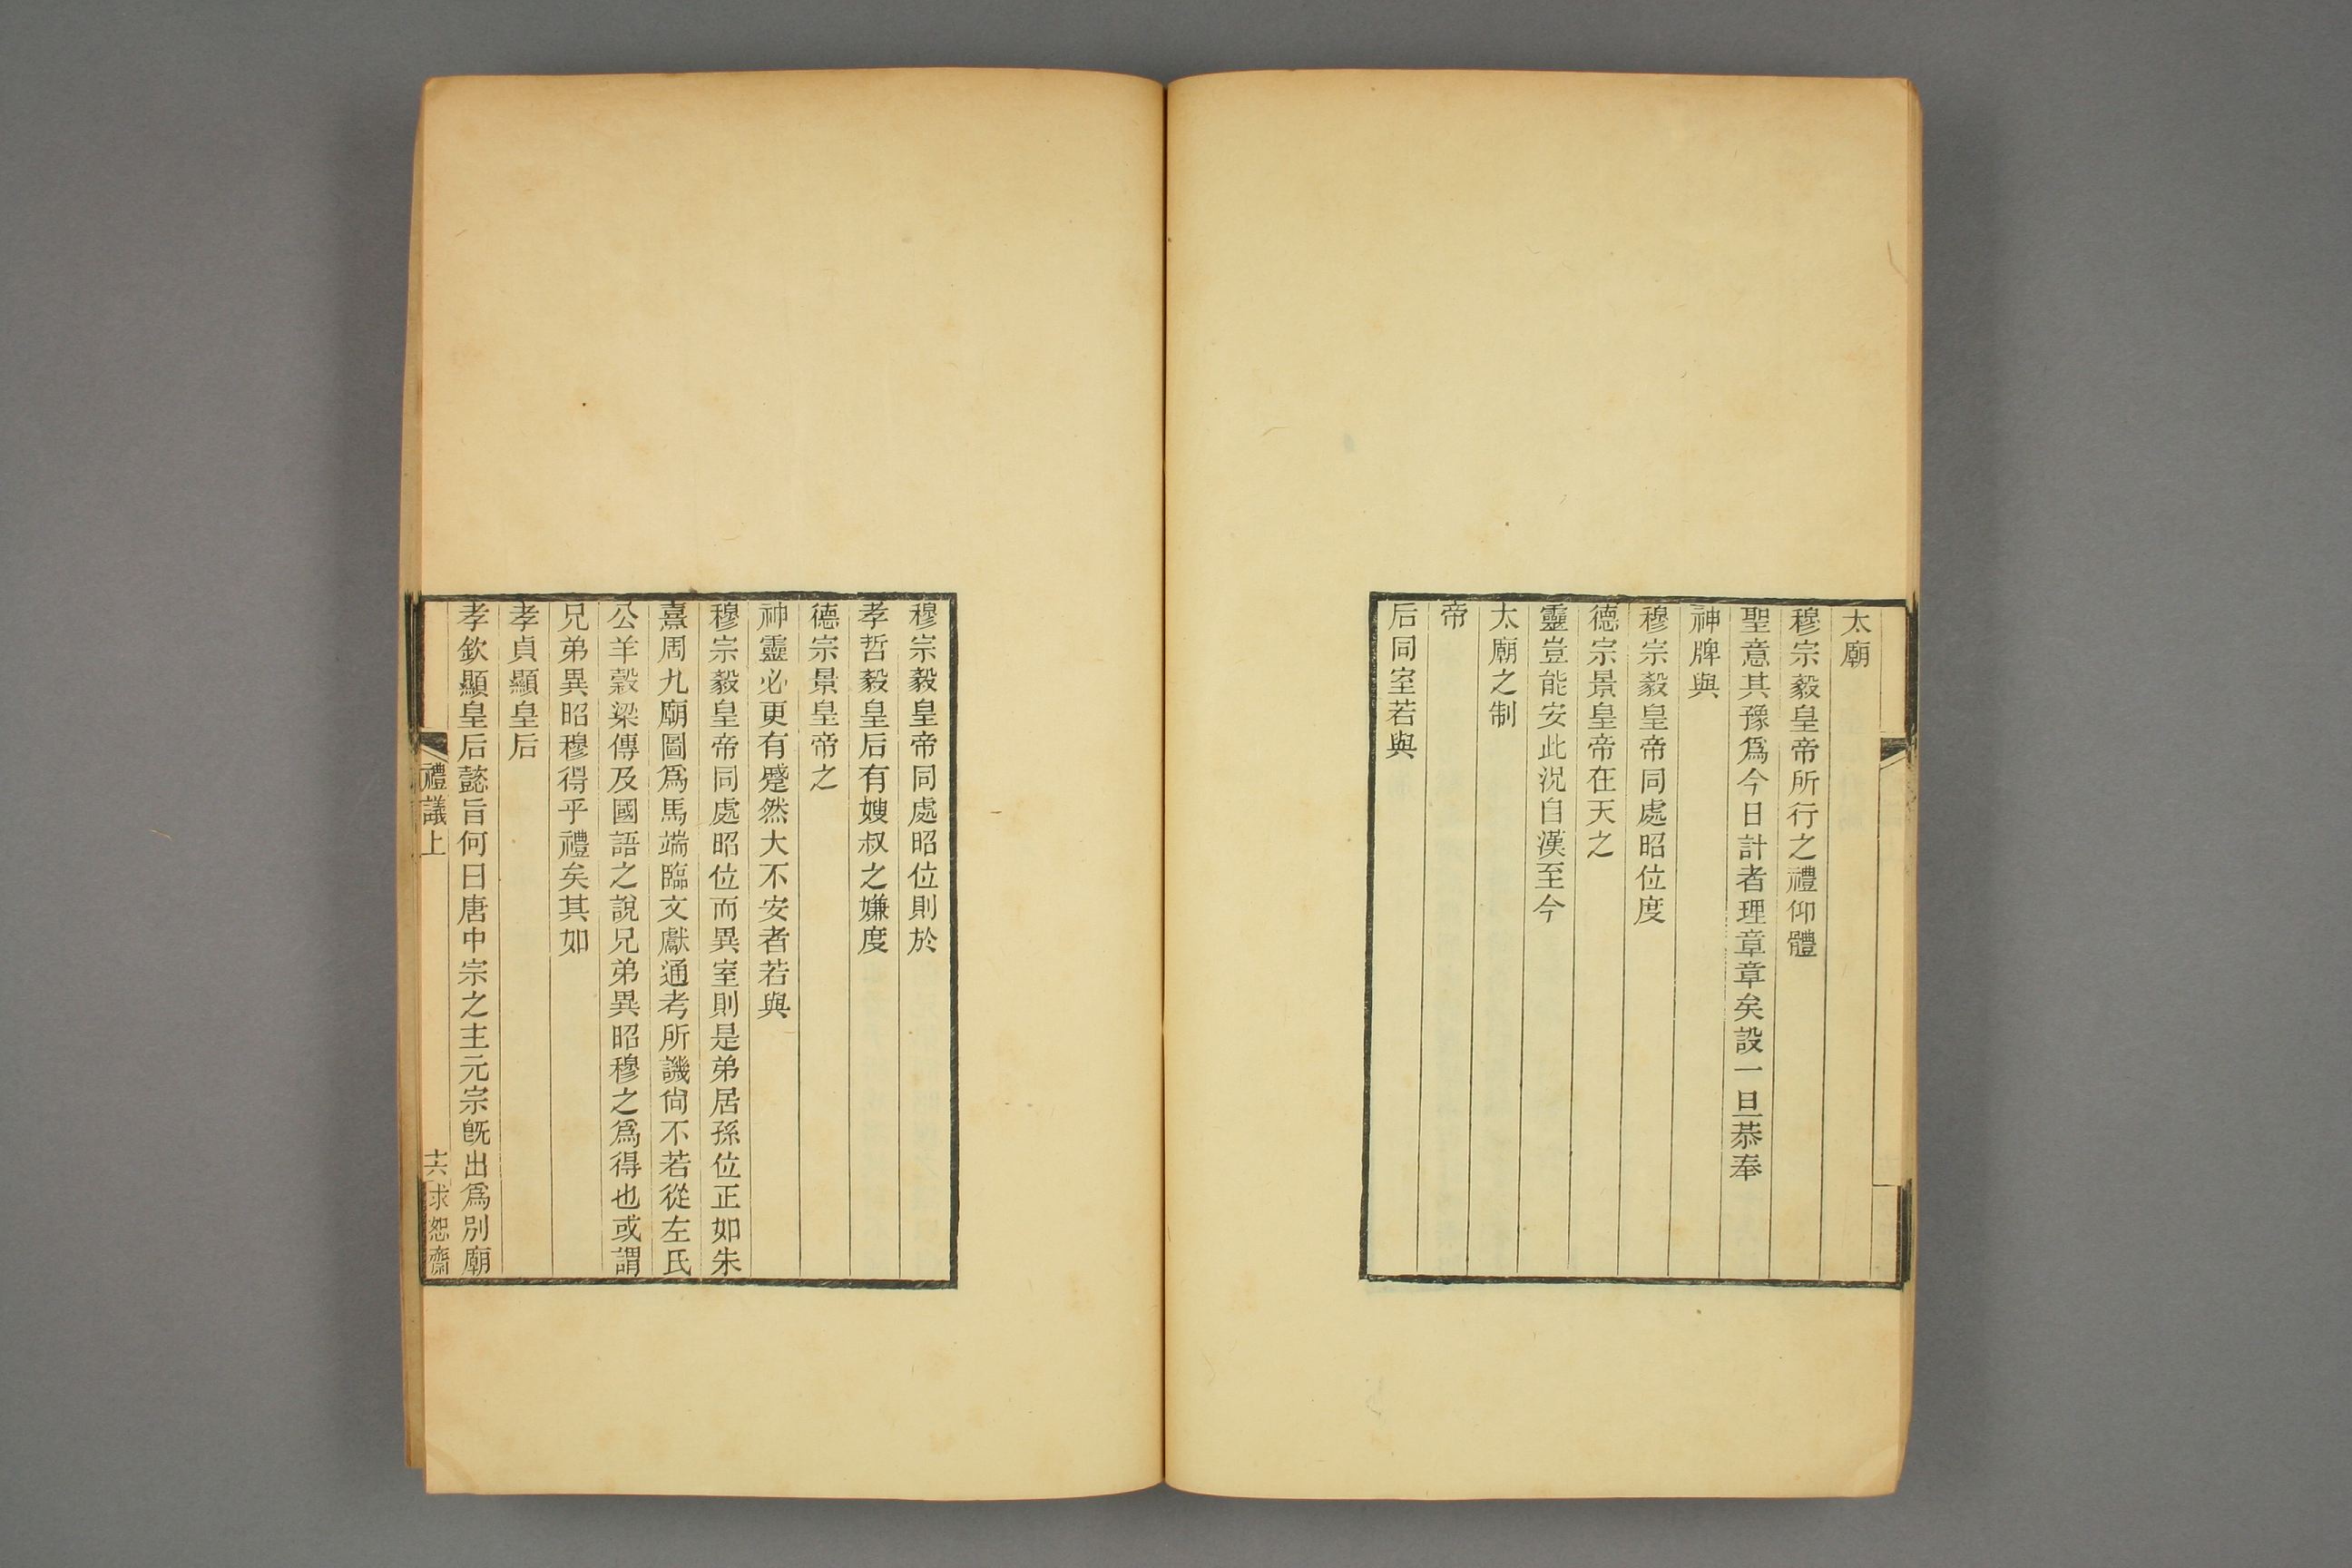 太廟
穆宗毅皇帝所行之禮仰體
聖意其豫爲今日計者理章章矣設一旦恭奉
神牌與
穆宗毅皇帝同處昭位度
德宗景皇帝在天之
靈豈能安此況自漢至今
太廟之制
帝
后同室若與
穆宗毅皇帝同處昭位則於
孝哲毅皇后有嫂叔之嫌度
德宗景皇帝之
神靈必更有蹙然大不安者若與
穆宗毅皇帝同處昭位而異室則是弟居孫位正如朱
熹周九廟圖爲馬端臨文獻通考所譏尙不若從左氏
公羊穀梁傳及國語之說兄弟異昭穆之爲得也或謂
兄弟異昭穆得乎禮矣其如
孝貞顯皇后
孝欽顯皇后懿旨何曰唐中宗之主元宗旣出爲別廟
禮議上
十六
求恕齋